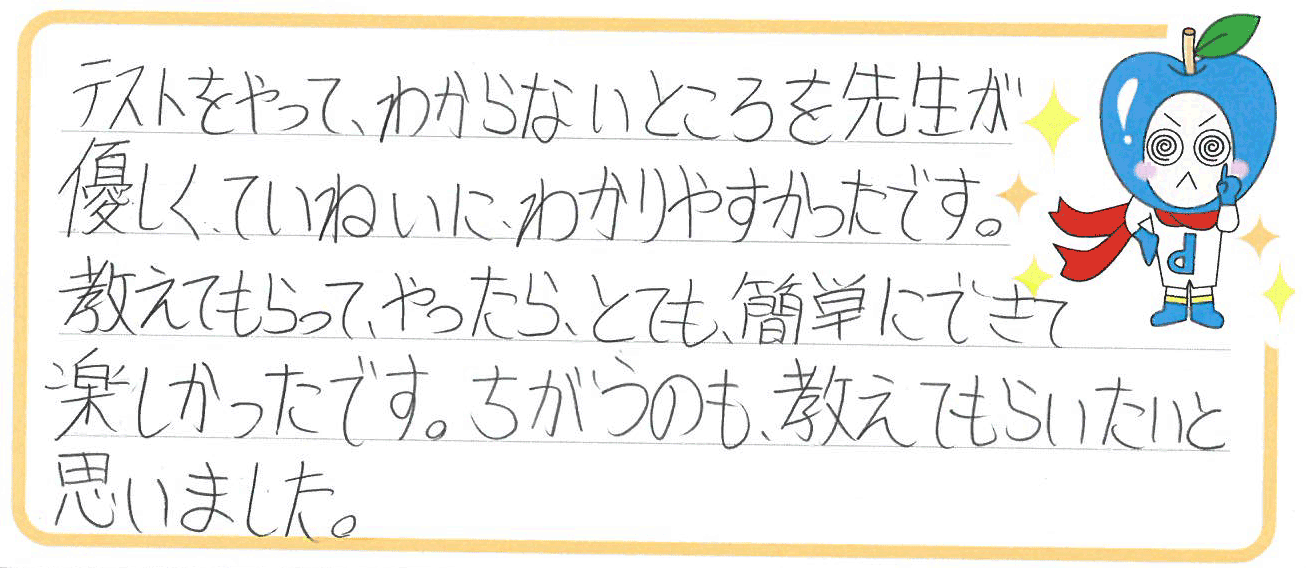 テストをやって、わからないところを先生が
優しく、ていねいに、わかりやすかったです。
教えてもらって、やったら、とても、簡単にできて
楽しかったです。ちがうのも、教えてもらいたいと
思いました。
d